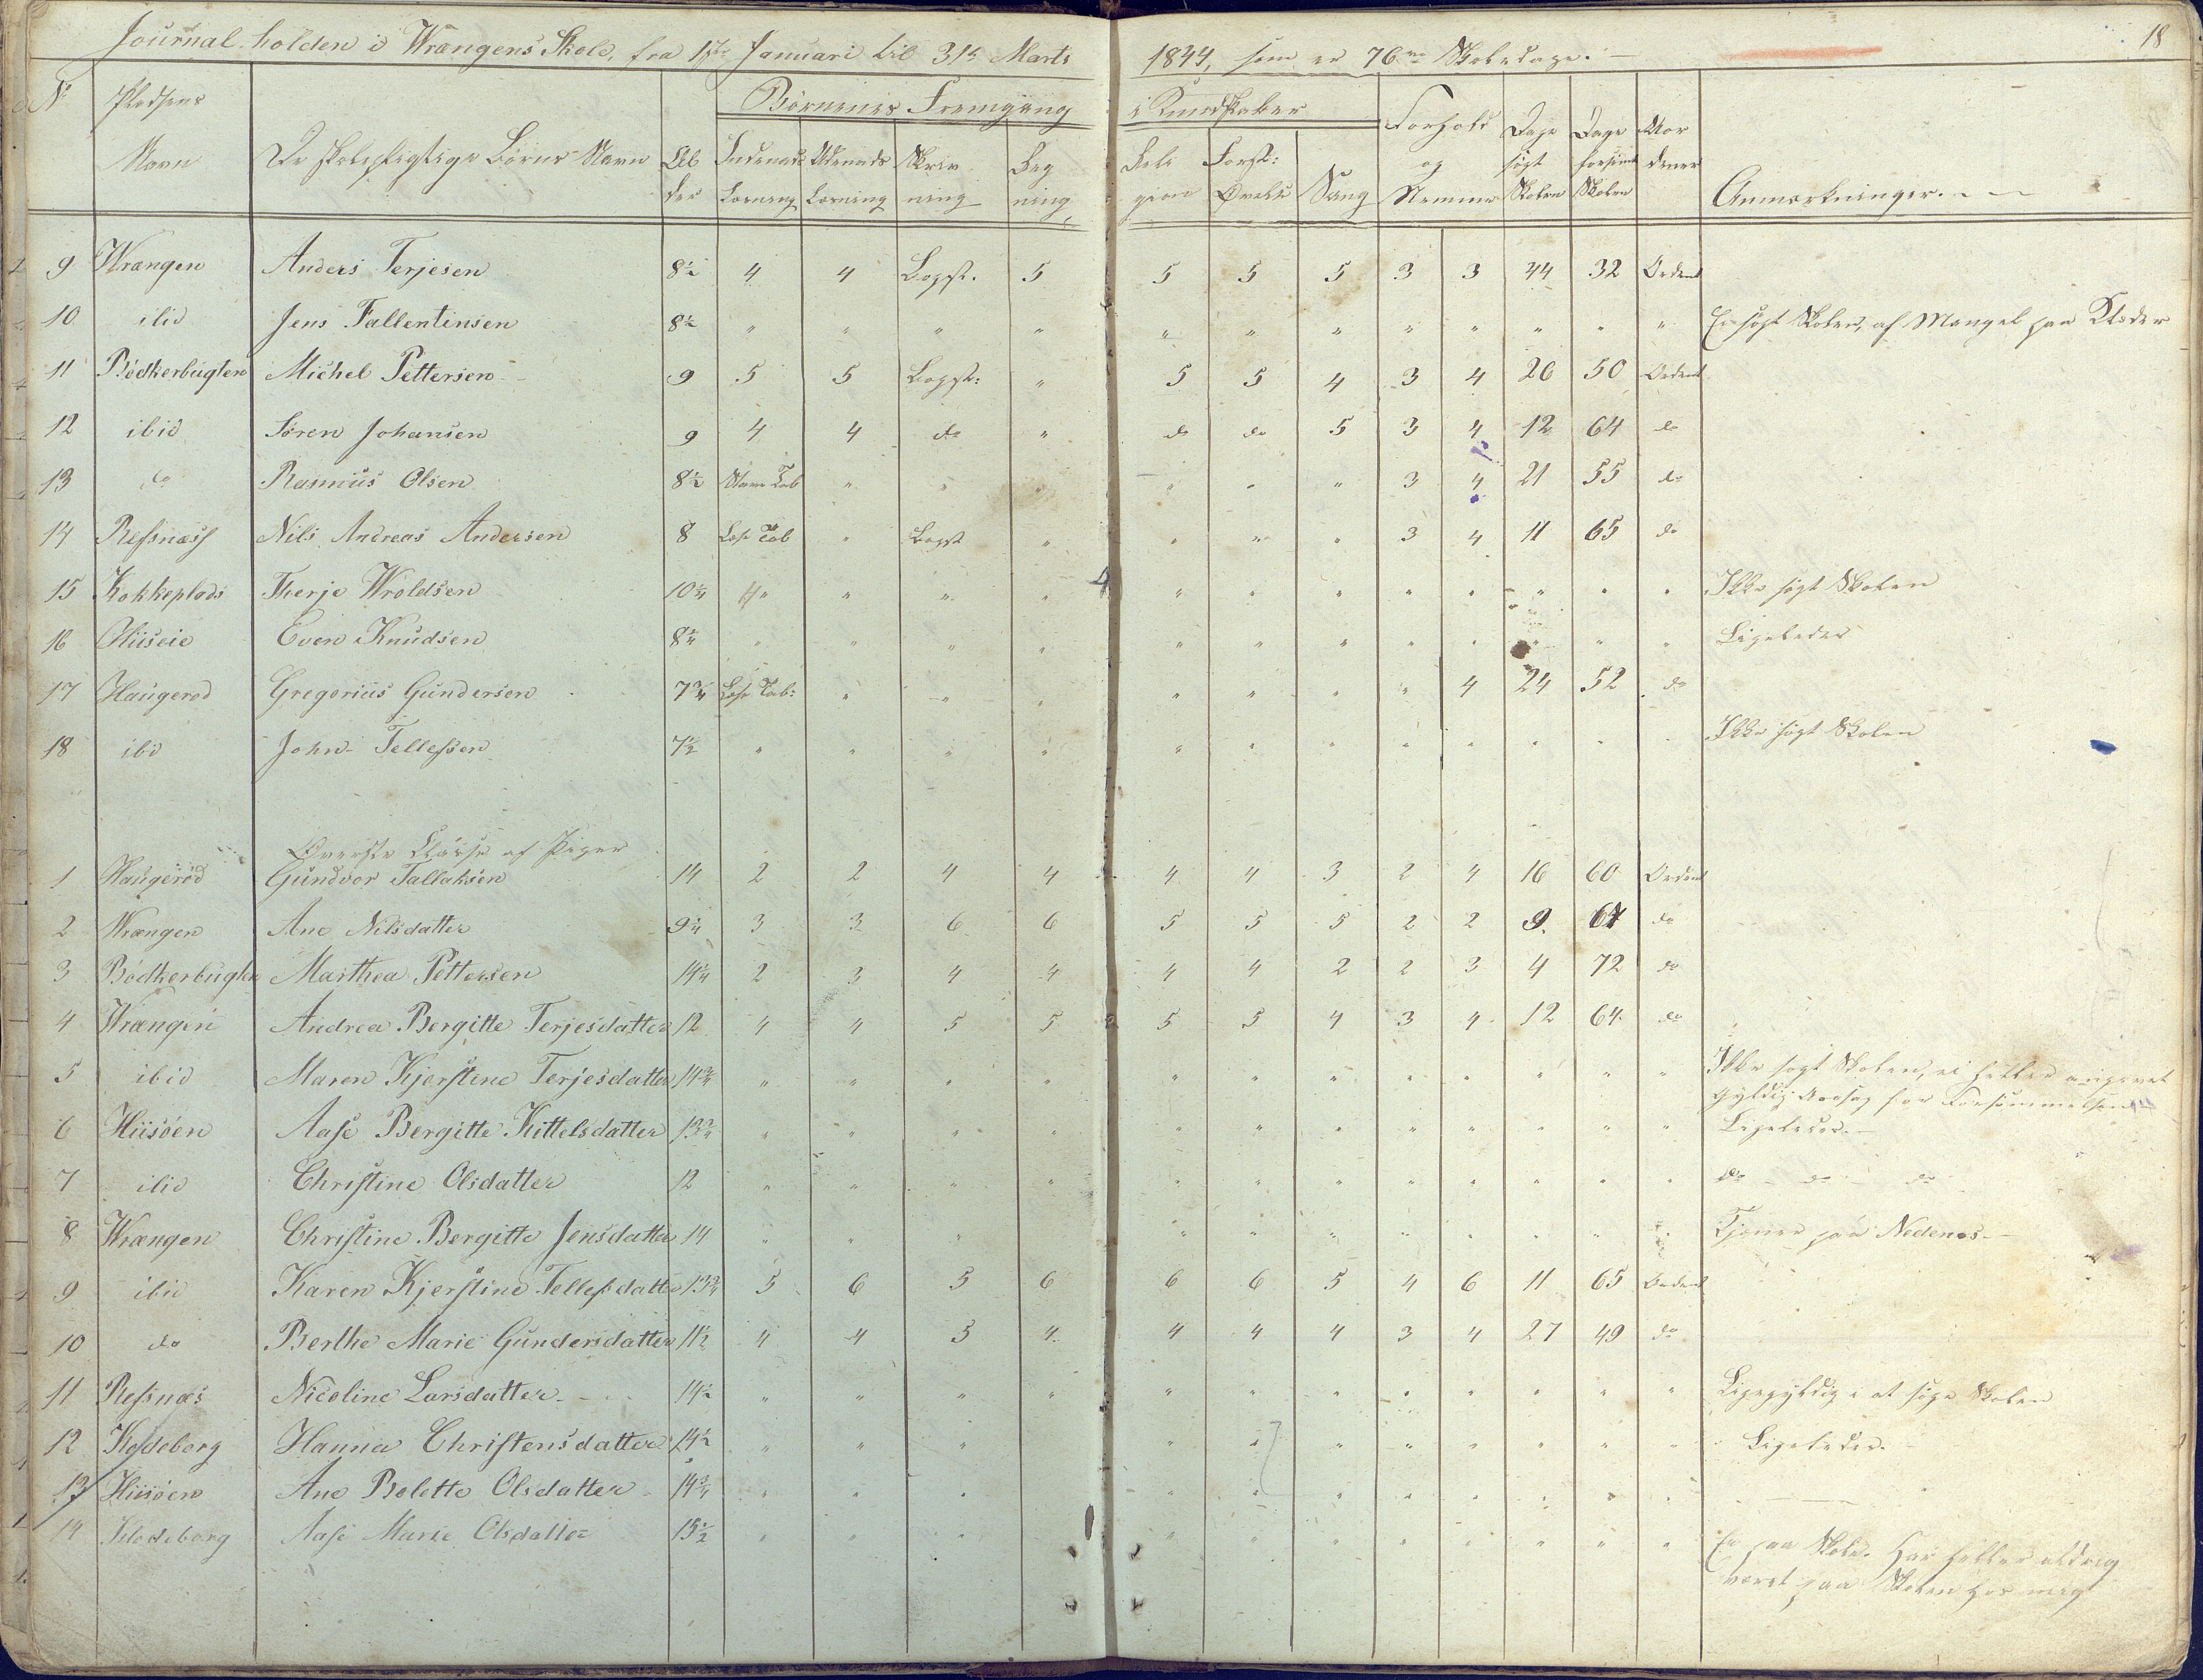 18
Journal holden i Wrangens Skole, fra 1ste Januari til 31te Marts 1844, som er 76 Skoledage.
No Pladsens Navn De skolepligtige Børns Navn Alder Børnenes Fremgang i Kundskaber Forhold og Nemme Dage søgt Skolen Dage forsømt Skolen Mordener Anmærkninger.
Indenads Læsning Udenads Læsning Skrivning Regning Religion Forst: Øvelse Sang
9 Wrangen Anders Terjesen 8½ 4 4 Bogst. 5 5 5 5 3 3 44 32 Ordent
10 ibid Jens Fallentinsen 8½ " " " " " " " " " " " " Ei søgt Skolen, af Mangel paa Klæder
11 Bödkerbugten Michel Pettersen 9 5 5 Bogst: " 5 5 4 3 4 26 50 Ordent
12 ibid Søren Johansen 9 4 4 do " do do 5 3 4 12 64 do
13 do Rasmus Olsen 8½ Stave Tab " " " " " " 3 4 21 55 do
14 Refsnæss Nils Andreas Andersen 8 Læse Tab " Bogst " " " " 3 4 11 65 do
15 Kokkeplads Therje Wroldsen 10¼ " " " " " " " " " " " " Ikke søgt Skolen
16 Hiiseie Even Knudsen 8¼ " " " " " " " " " " " " Ligeledes
17 Haugerod Gregorius Gundersen 7¾ Læse Tab: " " " " " " " 4 24 52 do
18 ibd John Tellefsen 7½ " " " " " " " " " " " " Ikke søgt Skolen
Øverste Classe af Piger
1 Haugerød Gundvor Tallaksen 14 2 2 4 4 4 4 3 2 4 16 60 Ordent
2 Wrangen Ane Nilsdatter 9¼ 3 3 6 6 5 5 5 2 2 9 67 do
3 Bödkerbugten Marthea Pettersen 14¼ 2 3 4 4 4 4 2 2 3 4 72 do
4 Wrangen Andrea Bergitte Terjesdatter 12 4 4 5 5 5 5 4 3 4 12 64 do
5 ibid Maren Kjerstine Terjesdatter 14¾ " " " " " " " " " " " " Ikke søgt Skolen, ei heller angivet
Gyldig Aarsag for Forsømmelsen
6 Hiisøen Aase Bergitte Kittelsdatter 13¾ " " " " " " " " " " " " Ligeledes.
7 ibid Christine Olsdatter 12 " " " " " " " " " " " " do do do
8 Wrangen Christine Bergitte Jensdatter 14 " " " " " " " " " " " Tjener paa Nedenes
9 ibid Karen Kjerstine Tellefsdatter 13¾ 5 6 5 6 6 6 5 4 6 11 65 Ordent
10 do Berthe Marie Gundersdatter 11½ 4 4 5 4 4 4 4 3 4 27 49 do
11 Refsnæs Nicoline Larsdatter 14½ " " " " " " " " " " " " Ligegyldig i at søge Skolen
12 Klodeborg Hanna Christensdatter 14½ " " " " " " " " " " " Ligeledes.
13 Hiisøen Ane Bolette Olsdatter 14¾ " " " " " " " " " " "
14 Klodeborg Aase Marie Olsdatter 15½ " " " " " " " " " " " Ei paa Skole. Har heller aldrig
været paa Skolen hos mig